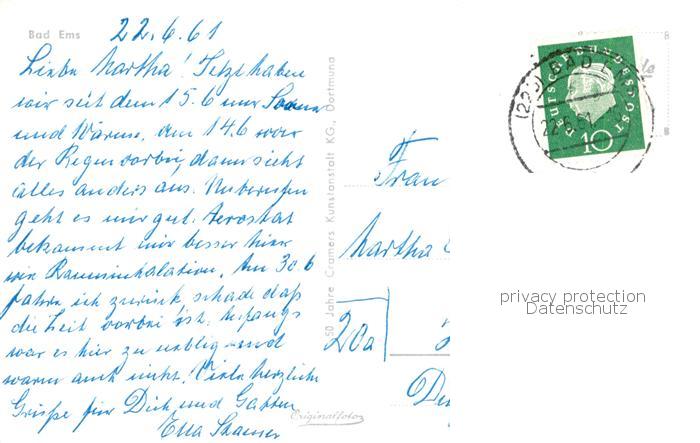 Bad Ems
22.6.61
Liebe Martha! Jetzt haben
wir seit dem 15.6 nur Sonne
und Wärme, am 14.6 war
der Regen vorbei, dann sieht
alles anders aus. Unberufen
geht es mir gut. Aerostat
bekommt mir besser hier
wie Rauminhalation. Am 30.6
fahre ich zurück, schade daß
die Zeit vorbei ist. Anfangs
war es hier zu neblig und
warm auch nicht. Viele herzliche
Grüße für Dich und Gatten
Ella
50 Jahre Cramers Kunstanstalt KG., Dortmund
Originalfoto
Frau
Martha
20a
DEUTSCHE BUNDESPOST
10
(22 BAD E
22.6.61
privacy protection
Datenschutz